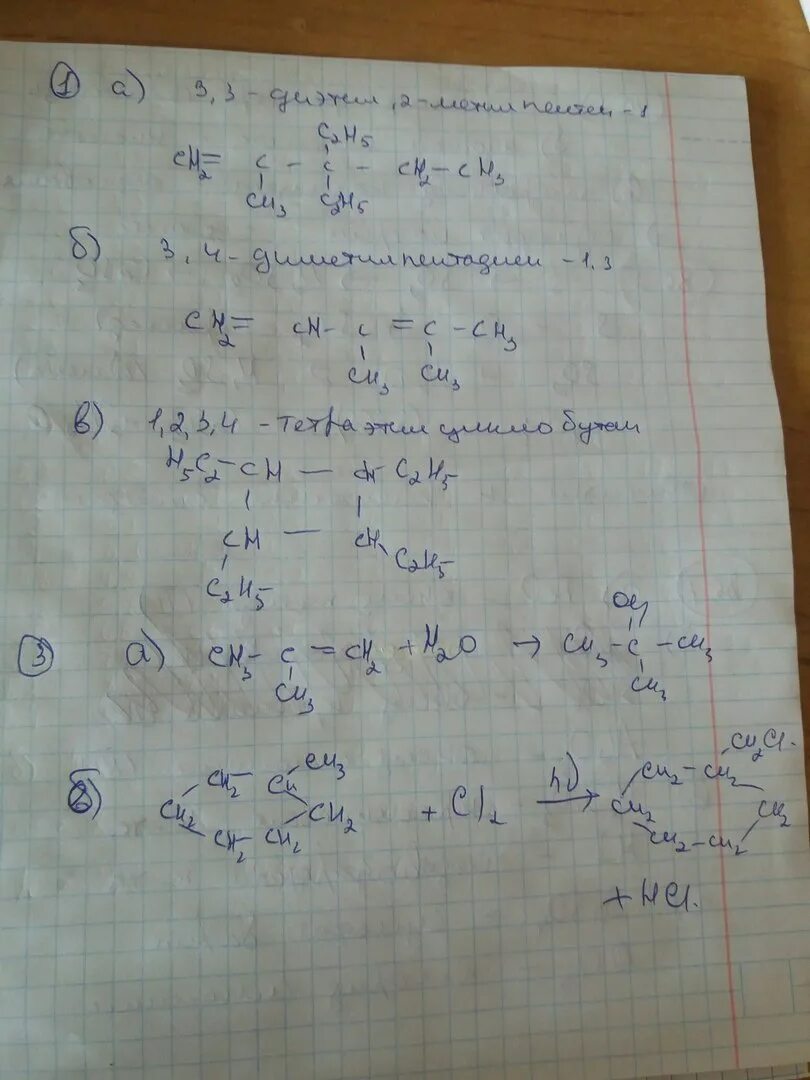 1 а) 3,3-диэтил, 2-метилпентен-1
C2H5
CH2= C - C - CH2-CH3
CH3 C2H5
б) 3,4-диметилпентадиен-1,3
CH2= CH-C=C-CH3
CH3 CH3
в) 1,2,3,4-тетраэтилциклобутан
H5C2-CH — CH C2H5
CH — CH
C2H5 C2H5
OH
3 а) CH3-C=CH2+H2O → CH3-C-CH3
CH3 CH3
CH2Cl.
CH3 CH2-CH2
б) CH2 CH hν
CH2 CH2 + Cl2 → CH2 CH2
CH2 CH2 CH2-CH2
+HCl.